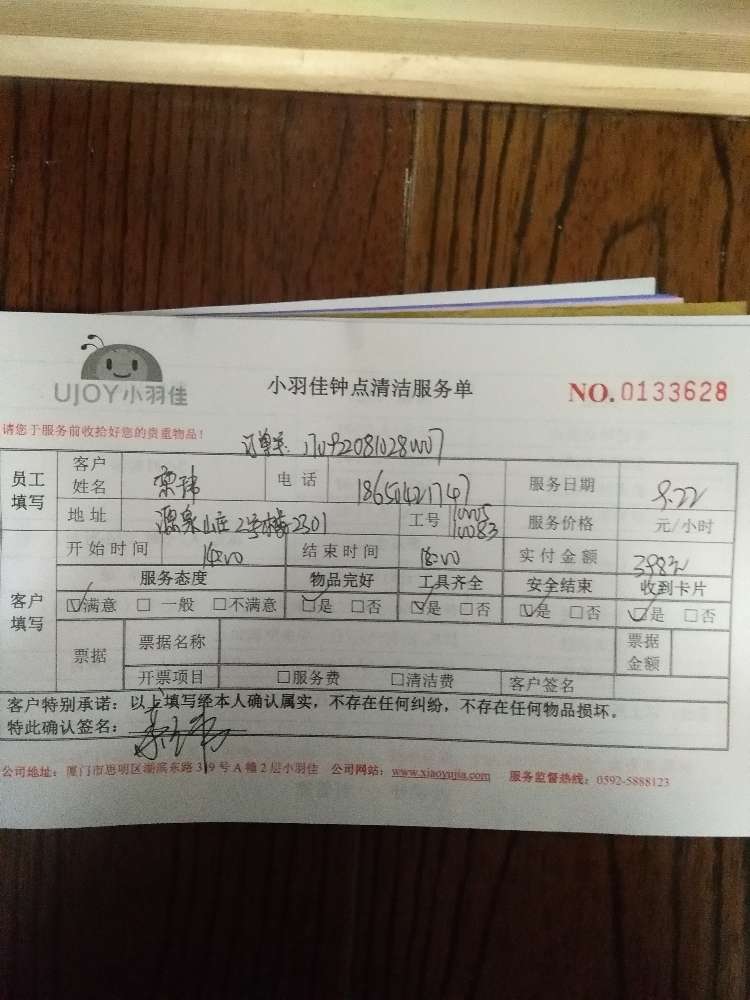 UJOY小羽佳
小羽佳钟点清洁服务单
NO.0133628
请您于服务前收拾好您的贵重物品！
员工填写 客户姓名 电话 18650421747 服务日期 9.22
地址 源泉山庄2号楼2301 工号 服务价格 元/小时
客户填写 开始时间 14:00 结束时间 18:00 实付金额 398元
服务态度 物品完好 工具齐全 安全结束 收到卡片
☑满意 □一般 □不满意 ☑是 □否 ☑是 □否 ☑是 □否 ☑是 □否
票据 票据名称 票据金额
开票项目 □服务费 □清洁费 客户签名
客户特别承诺：以上填写经本人确认属实，不存在任何纠纷，不存在任何物品损坏。
特此确认签名：
公司地址：厦门市思明区湖滨东路319号A幢2层小羽佳 公司网站：www.xiaoyujia.com 服务监督热线：0592-5888123